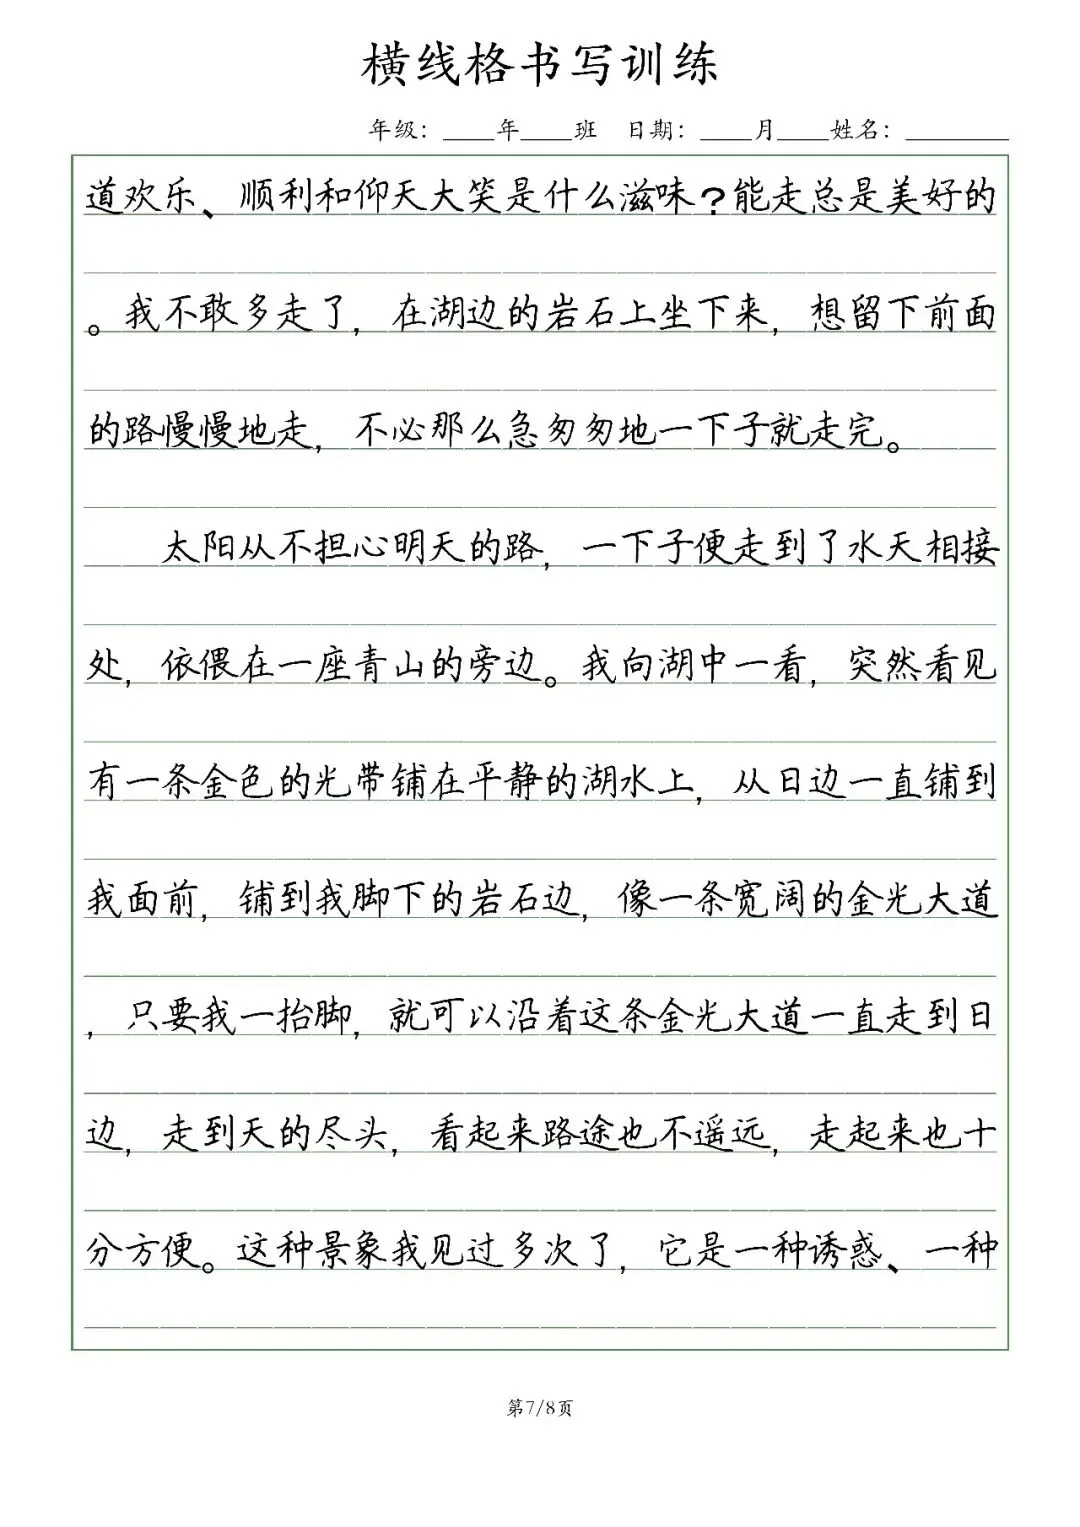 横线格书写训练
年级：____年____班 日期：____月____姓名：________
道欢乐、顺利和仰天大笑是什么滋味？能走总是美好的
。我不敢多走了，在湖边的岩石上坐下来，想留下前面
的路慢慢地走，不必那么急匆匆地一下子就走完。
太阳从不担心明天的路，一下子便走到了水天相接
处，依偎在一座青山的旁边。我向湖中一看，突然看见
有一条金色的光带铺在平静的湖水上，从日边一直铺到
我面前，铺到我脚下的岩石边，像一条宽阔的金光大道
，只要我一抬脚，就可以沿着这条金光大道一直走到日
边，走到天的尽头，看起来路途也不遥远，走起来也十
分方便。这种景象我见过多次了，它是一种诱惑、一种
第7/8页